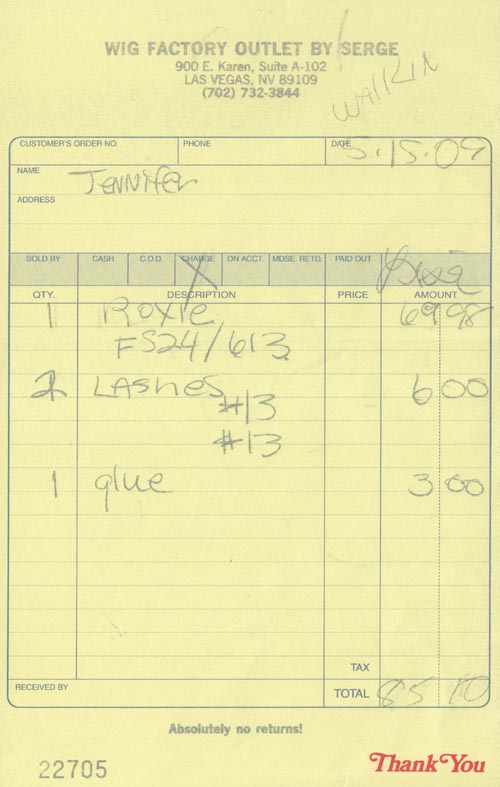 WIG FACTORY OUTLET BY SERGE
900 E. Karen, Suite A-102
LAS VEGAS, NV 89109
(702) 732-3844
WALKIN
CUSTOMER'S ORDER NO. PHONE DATE 5.15.09
NAME Jennifer
ADDRESS
SOLD BY CASH C.O.D. CHARGE ON ACCT. MDSE. RETD. PAID OUT
QTY. DESCRIPTION PRICE AMOUNT
1 Roxie 69 98
FS24/613
2 LAShes 6 00
#13
#13
1 glue 3 00
TAX
RECEIVED BY TOTAL 85 10
Absolutely no returns!
22705 Thank You